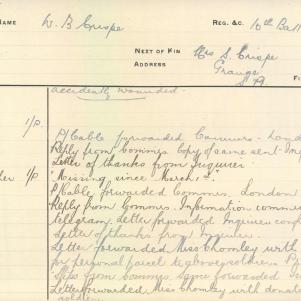 NAME W. B. Crispe REG. &C. 10th Batt
NEXT OF KIN Mrs S. Crispe
ADDRESS Grange
S.A.
accidently wounded.
P/Cable forwarded Commrs - Lo
Reply from Commrs Copy of same sent Inq
Letter of thanks from Inquirer
"Missing since March
P/Cable forwarded Commrs London
Reply from Commrs. Information comm
Telegram Letter forwarded Inquirer con
Letter of thanks from Inquirer.
Letter forwarded Miss Chomley with
for personal parcel to abovesoldier. P
from Commrs same forwarded In
Letter forwarded Miss Chomley with dona